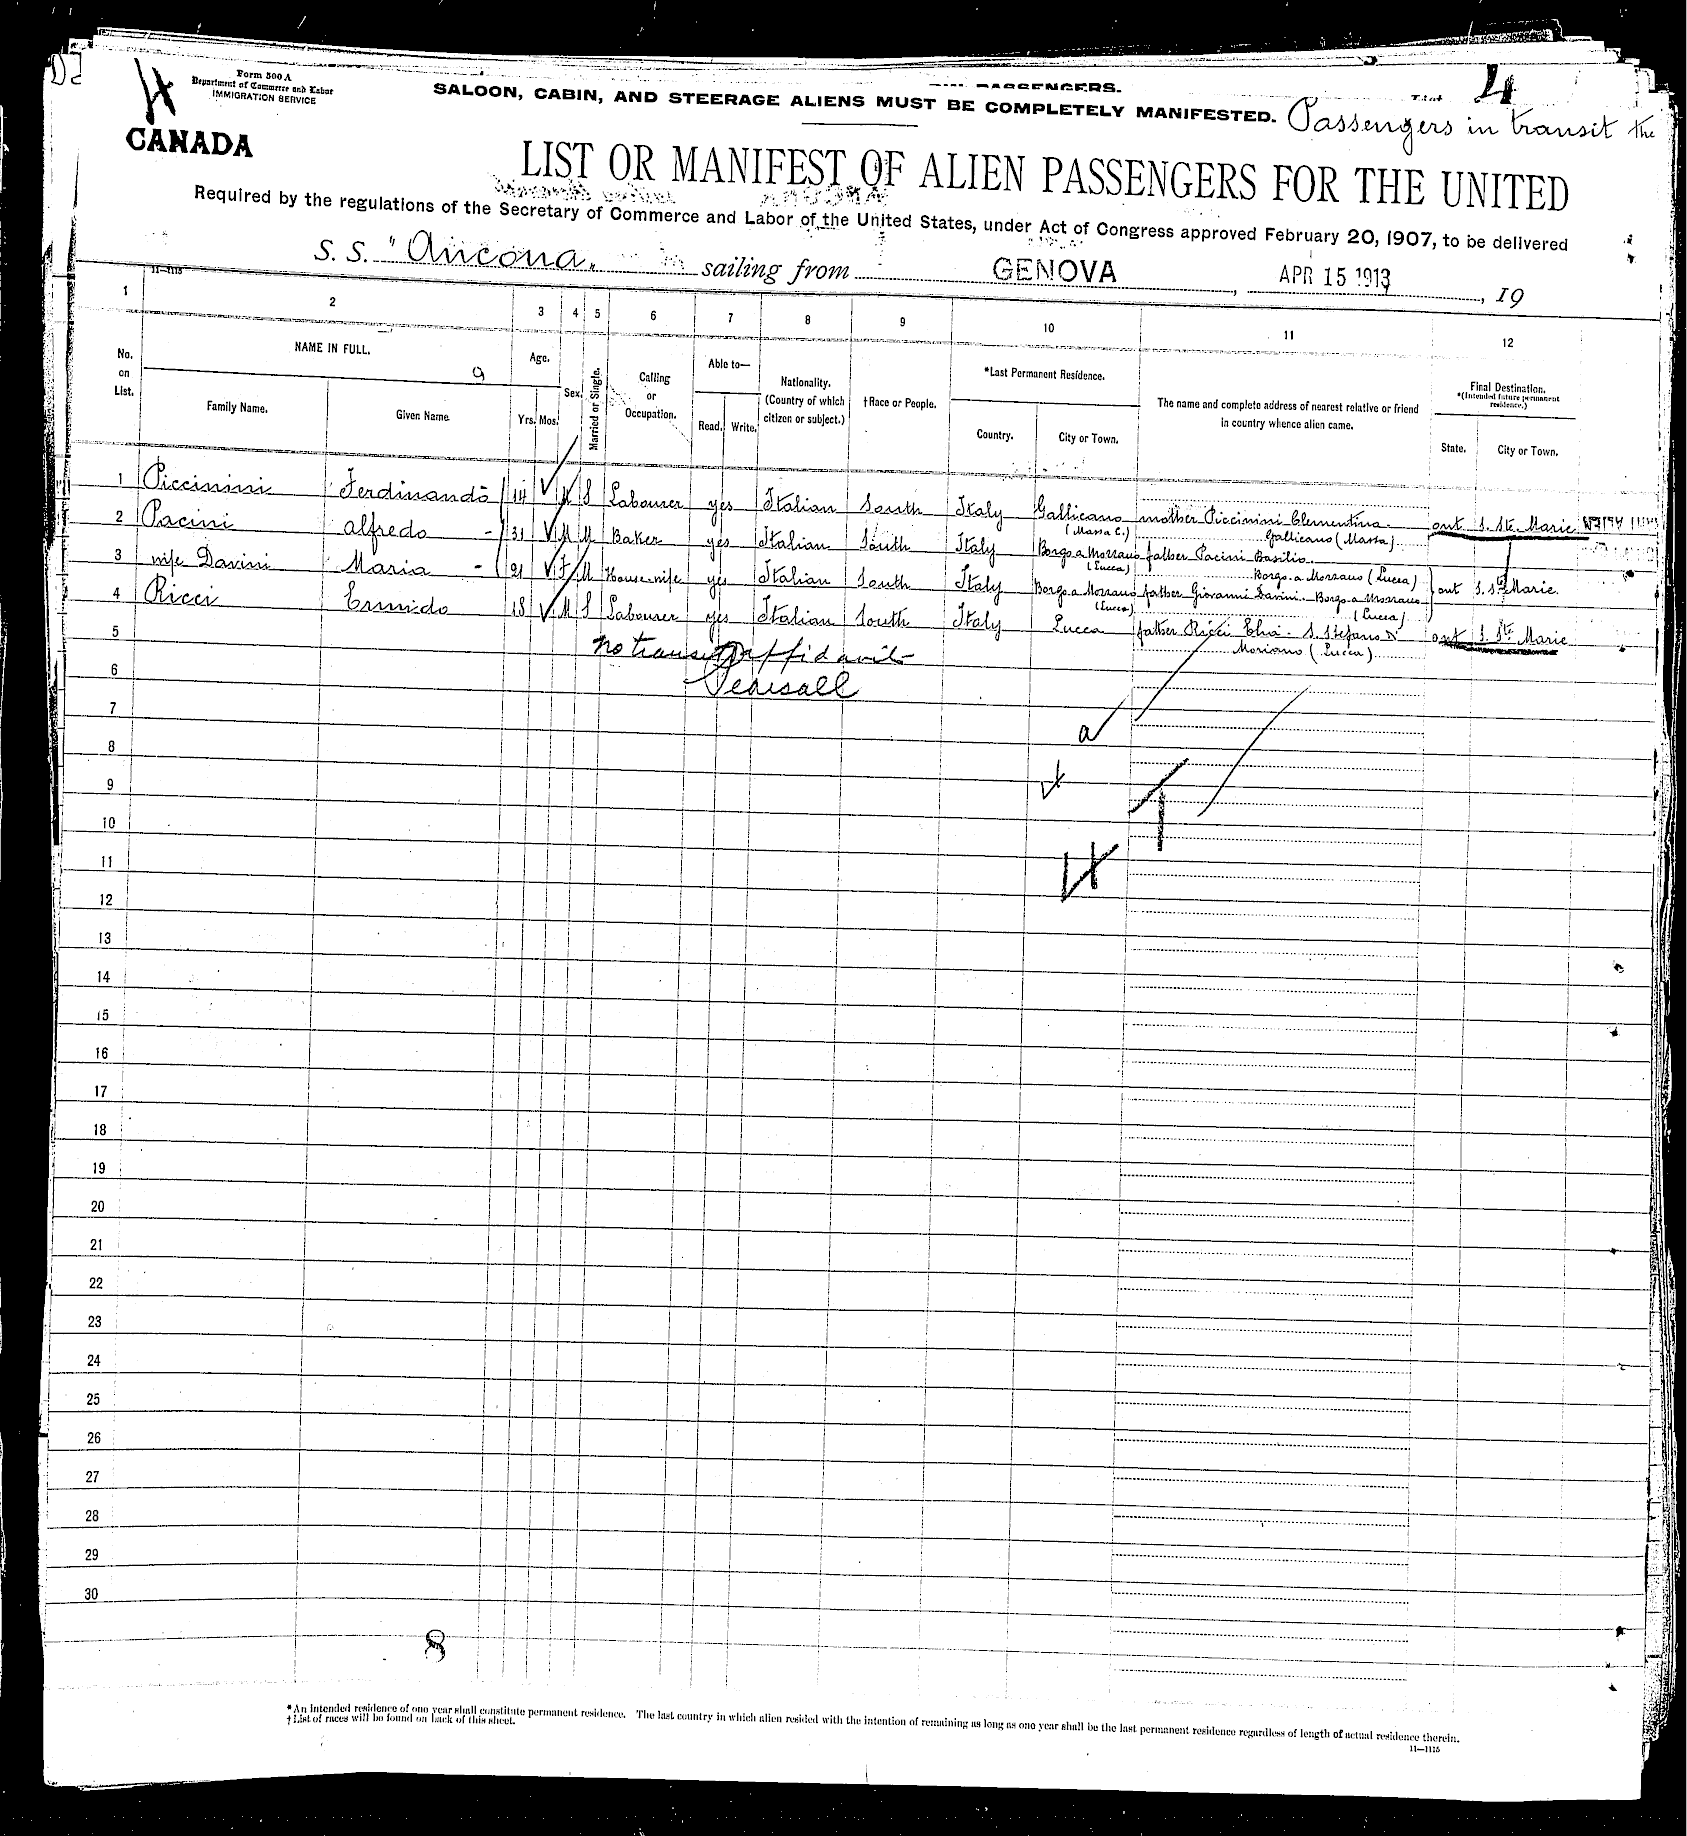 4
Form 500 A
Department of Commerce and Labor
IMMIGRATION SERVICE
CANADA
PASSENGERS.
4
SALOON, CABIN, AND STEERAGE ALIENS MUST BE COMPLETELY MANIFESTED. Passengers in transit the
LIST OR MANIFEST OF ALIEN PASSENGERS FOR THE UNITED
Required by the regulations of the Secretary of Commerce and Labor of the United States, under Act of Congress approved February 20, 1907, to be delivered
S. S. "Ancona. sailing from GENOVA, APR 15 1913, 19
11—1115
1 2 3 4 5 6 7 8 9 10 11 12
No. on List.
NAME IN FULL.
Family Name. Given Name
Age.
Yrs. Mos.
Sex.
Married or Single.
Calling or Occupation.
Able to—
Read. Write.
Nationality. (Country of which citizen or subject.)
†Race or People.
*Last Permanent Residence.
Country. City or Town.
The name and complete address of nearest relative or friend in country whence alien came.
Final Destination. *(Intended future permanent residence.)
State. City or Town.
1 Piccinini Ferdinando 14 M S Labourer yes Italian South Italy Gallicano (Massa C.) mother Piccinini Clementina. Gallicano (Massa) ont S. Ste. Marie
2 Pacini alfredo 31 M M Baker yes Italian South Italy Borgo a Mozzano (Lucca) father Pacini Basilio. Borgo a Mozzano (Lucca)
3 wife Davini Maria 21 F M House-wife yes Italian South Italy Borgo a Mozzano (Lucca) father Giovanni Davini. Borgo a Mozzano (Lucca) ont S. Ste Marie.
4 Ricci Ermido 18 M S Labourer yes Italian South Italy Lucca father Ricci Elia. S. Stefano Di Moriano (Lucca) ont S. Ste Marie
5 no transit affidavit
6 Pearsall
7
8
9
10
11
12
13
14
15
16
17
18
19
20
21
22
23
24
25
26
27
28
29
30
8
*An intended residence of one year shall constitute permanent residence. The last country in which alien resided with the intention of remaining as long as one year shall be the last permanent residence regardless of length of actual residence therein.
†List of races will be found on back of this sheet.
11—1115